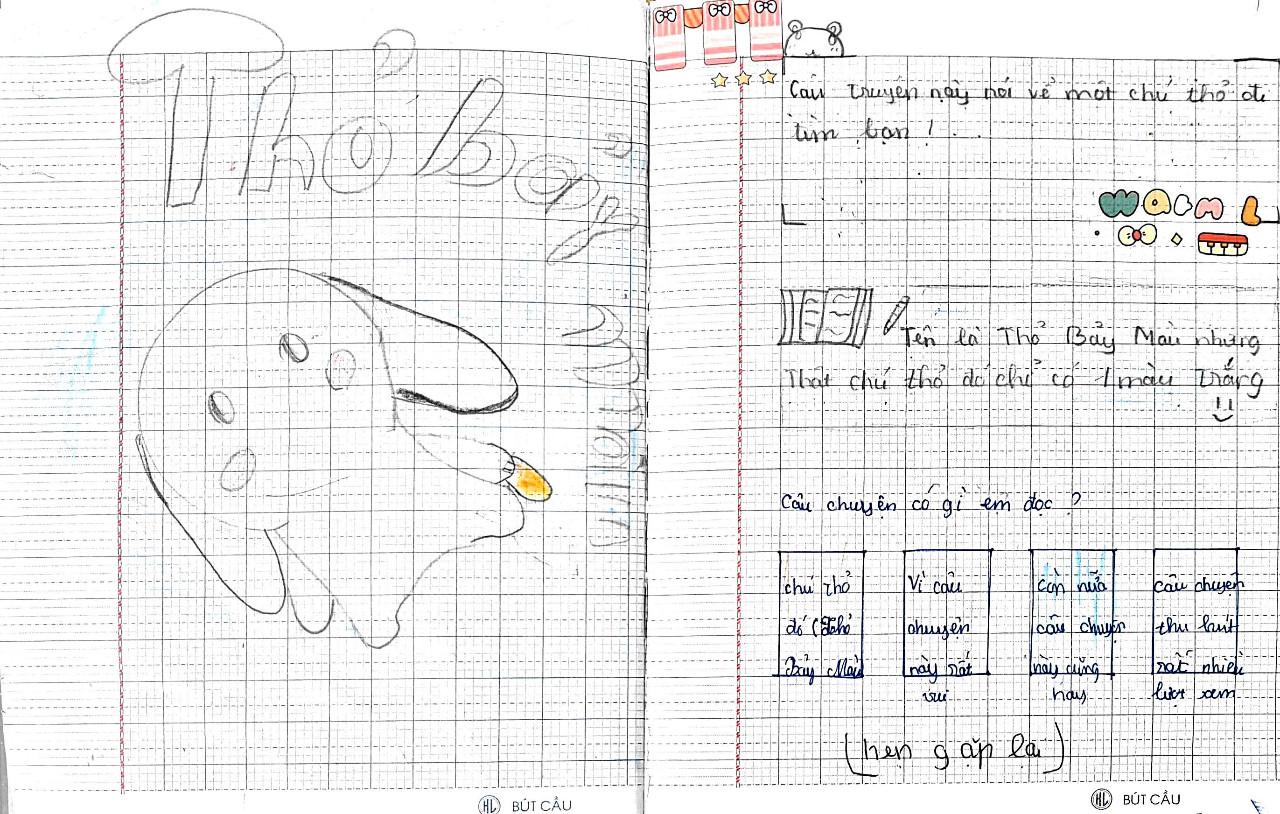 Thỏ bảy
màu
Câu truyện này nói về một chú thỏ đi
tìm bạn ! . . .
Warm L
Tên là Thỏ Bảy Màu nhưng
Thật chú thỏ đó chỉ có 1 màu trắng
Câu chuyện có gì em đọc ?
chú thỏ
đó (Thỏ
Bảy Màu
Vì câu
chuyện
này rất
vui
Còn nữa
câu chuyện
này cũng
hay
câu chuyện
thu hút
rất nhiều
lượt xem
(hẹn gặp lại)
HL BÚT CẦU
HL BÚT CẦU